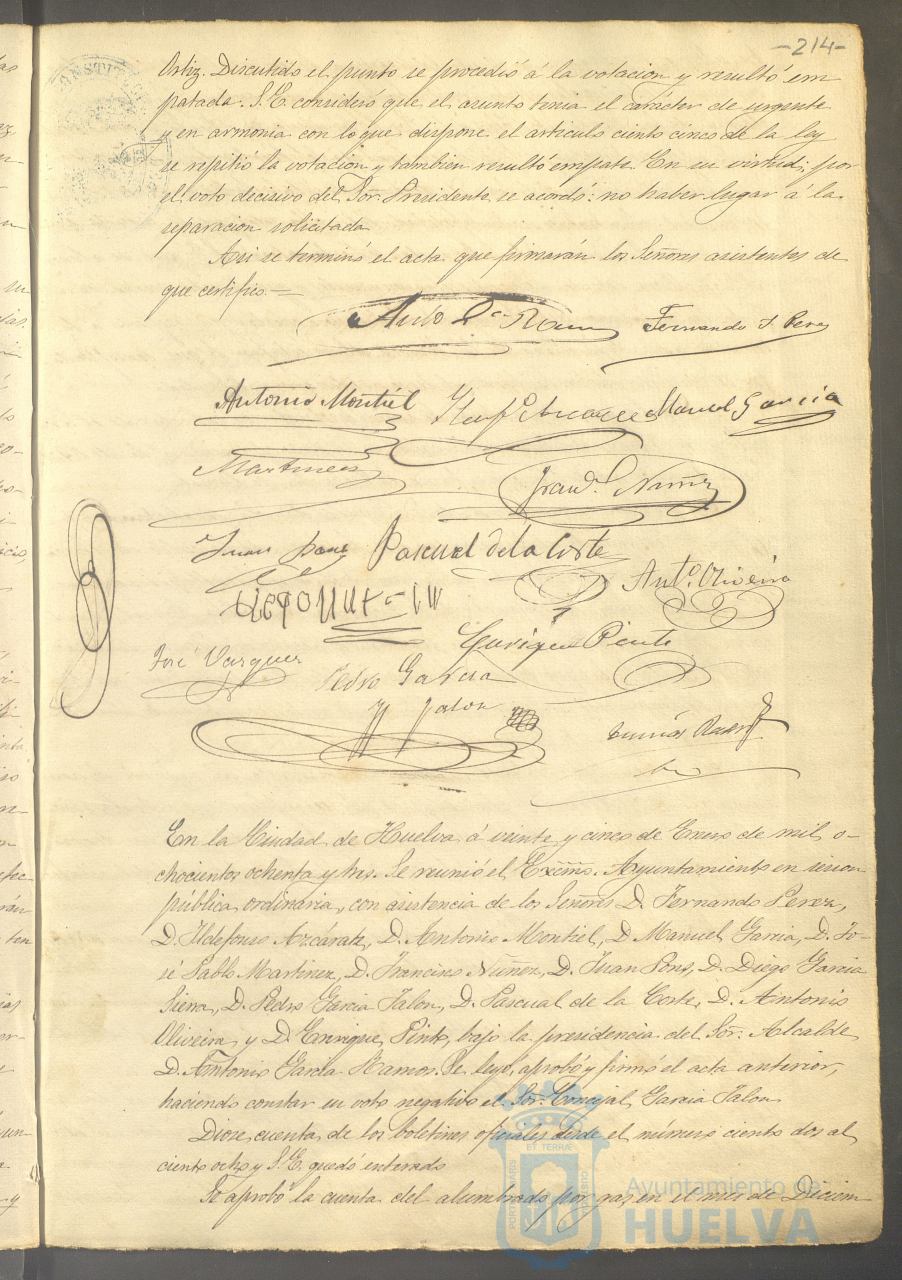 -214-
Ortiz. Discutido el punto se procedió á la votacion y resultó em
patada. S.E. consideró que el asunto tenia el carácter de urgente
y en armonia con lo que dispone el articulo ciento cinco de la ley
se repitió la votacion y tambien resultó empate. En su virtud; por
el voto decisivo del Sor. Presidente se acordó: no haber lugar á la
reparacion solicitada
Asi se terminó el acta que firmarán los Señores asistentes de
que certifico.—
Fernando Perez
Antonio Montiel
Manuel Garcia
Martinez
Franco. Nuñez
Juan Pons
Pascual de la Corte
Anto. Oliveira
Enrique Pinto
José Vazquez
Pedro Garcia
Jalon
En la Ciudad de Huelva á veinte y cinco de Enero de mil o-
chocientos ochenta y tres. Se reunió el Excmo. Ayuntamiento en sesion
pública ordinaria, con asistencia de los Señores D. Fernando Perez,
D. Ildefonso Azcárate, D. Antonio Montiel, D. Manuel Garcia, D. Jo-
sé Pablo Martinez, D. Francisco Nuñez, D. Juan Pons, D. Diego Garcia
Siena, D. Pedro Garcia Jalon, D. Pascual de la Corte, D. Antonio
Oliveira y D. Enrique Pinto, bajo la presidencia del Sor. Alcalde
D. Antonio Garcia Ramos. Se leyó, aprobó y firmó el acta anterior,
haciendo constar su voto negativo el Sor. Concejal Garcia Jalon
Diose cuenta de los boletines oficiales desde el número ciento dos al
ciento ocho y S.E. quedó enterado
Se aprobó la cuenta del alumbrado por gas en el mes de Diciem-
Ayuntamiento de
HUELVA